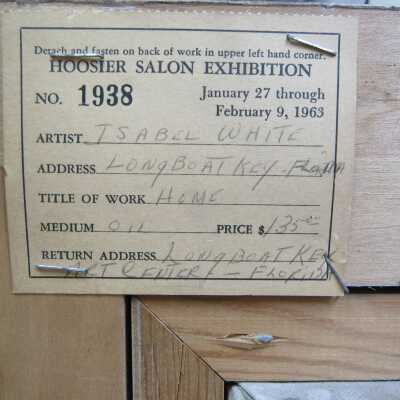 Detach and fasten on back of work in upper left hand corner.
HOOSIER SALON EXHIBITION
NO. 1938 January 27 through
February 9, 1963
ARTIST ISABEL WHITE
ADDRESS LONGBOAT KEY - FLORIDA
TITLE OF WORK HOME
MEDIUM OIL PRICE $135.00
RETURN ADDRESS LONGBOAT KEY
ART CENTER - FLORIDA